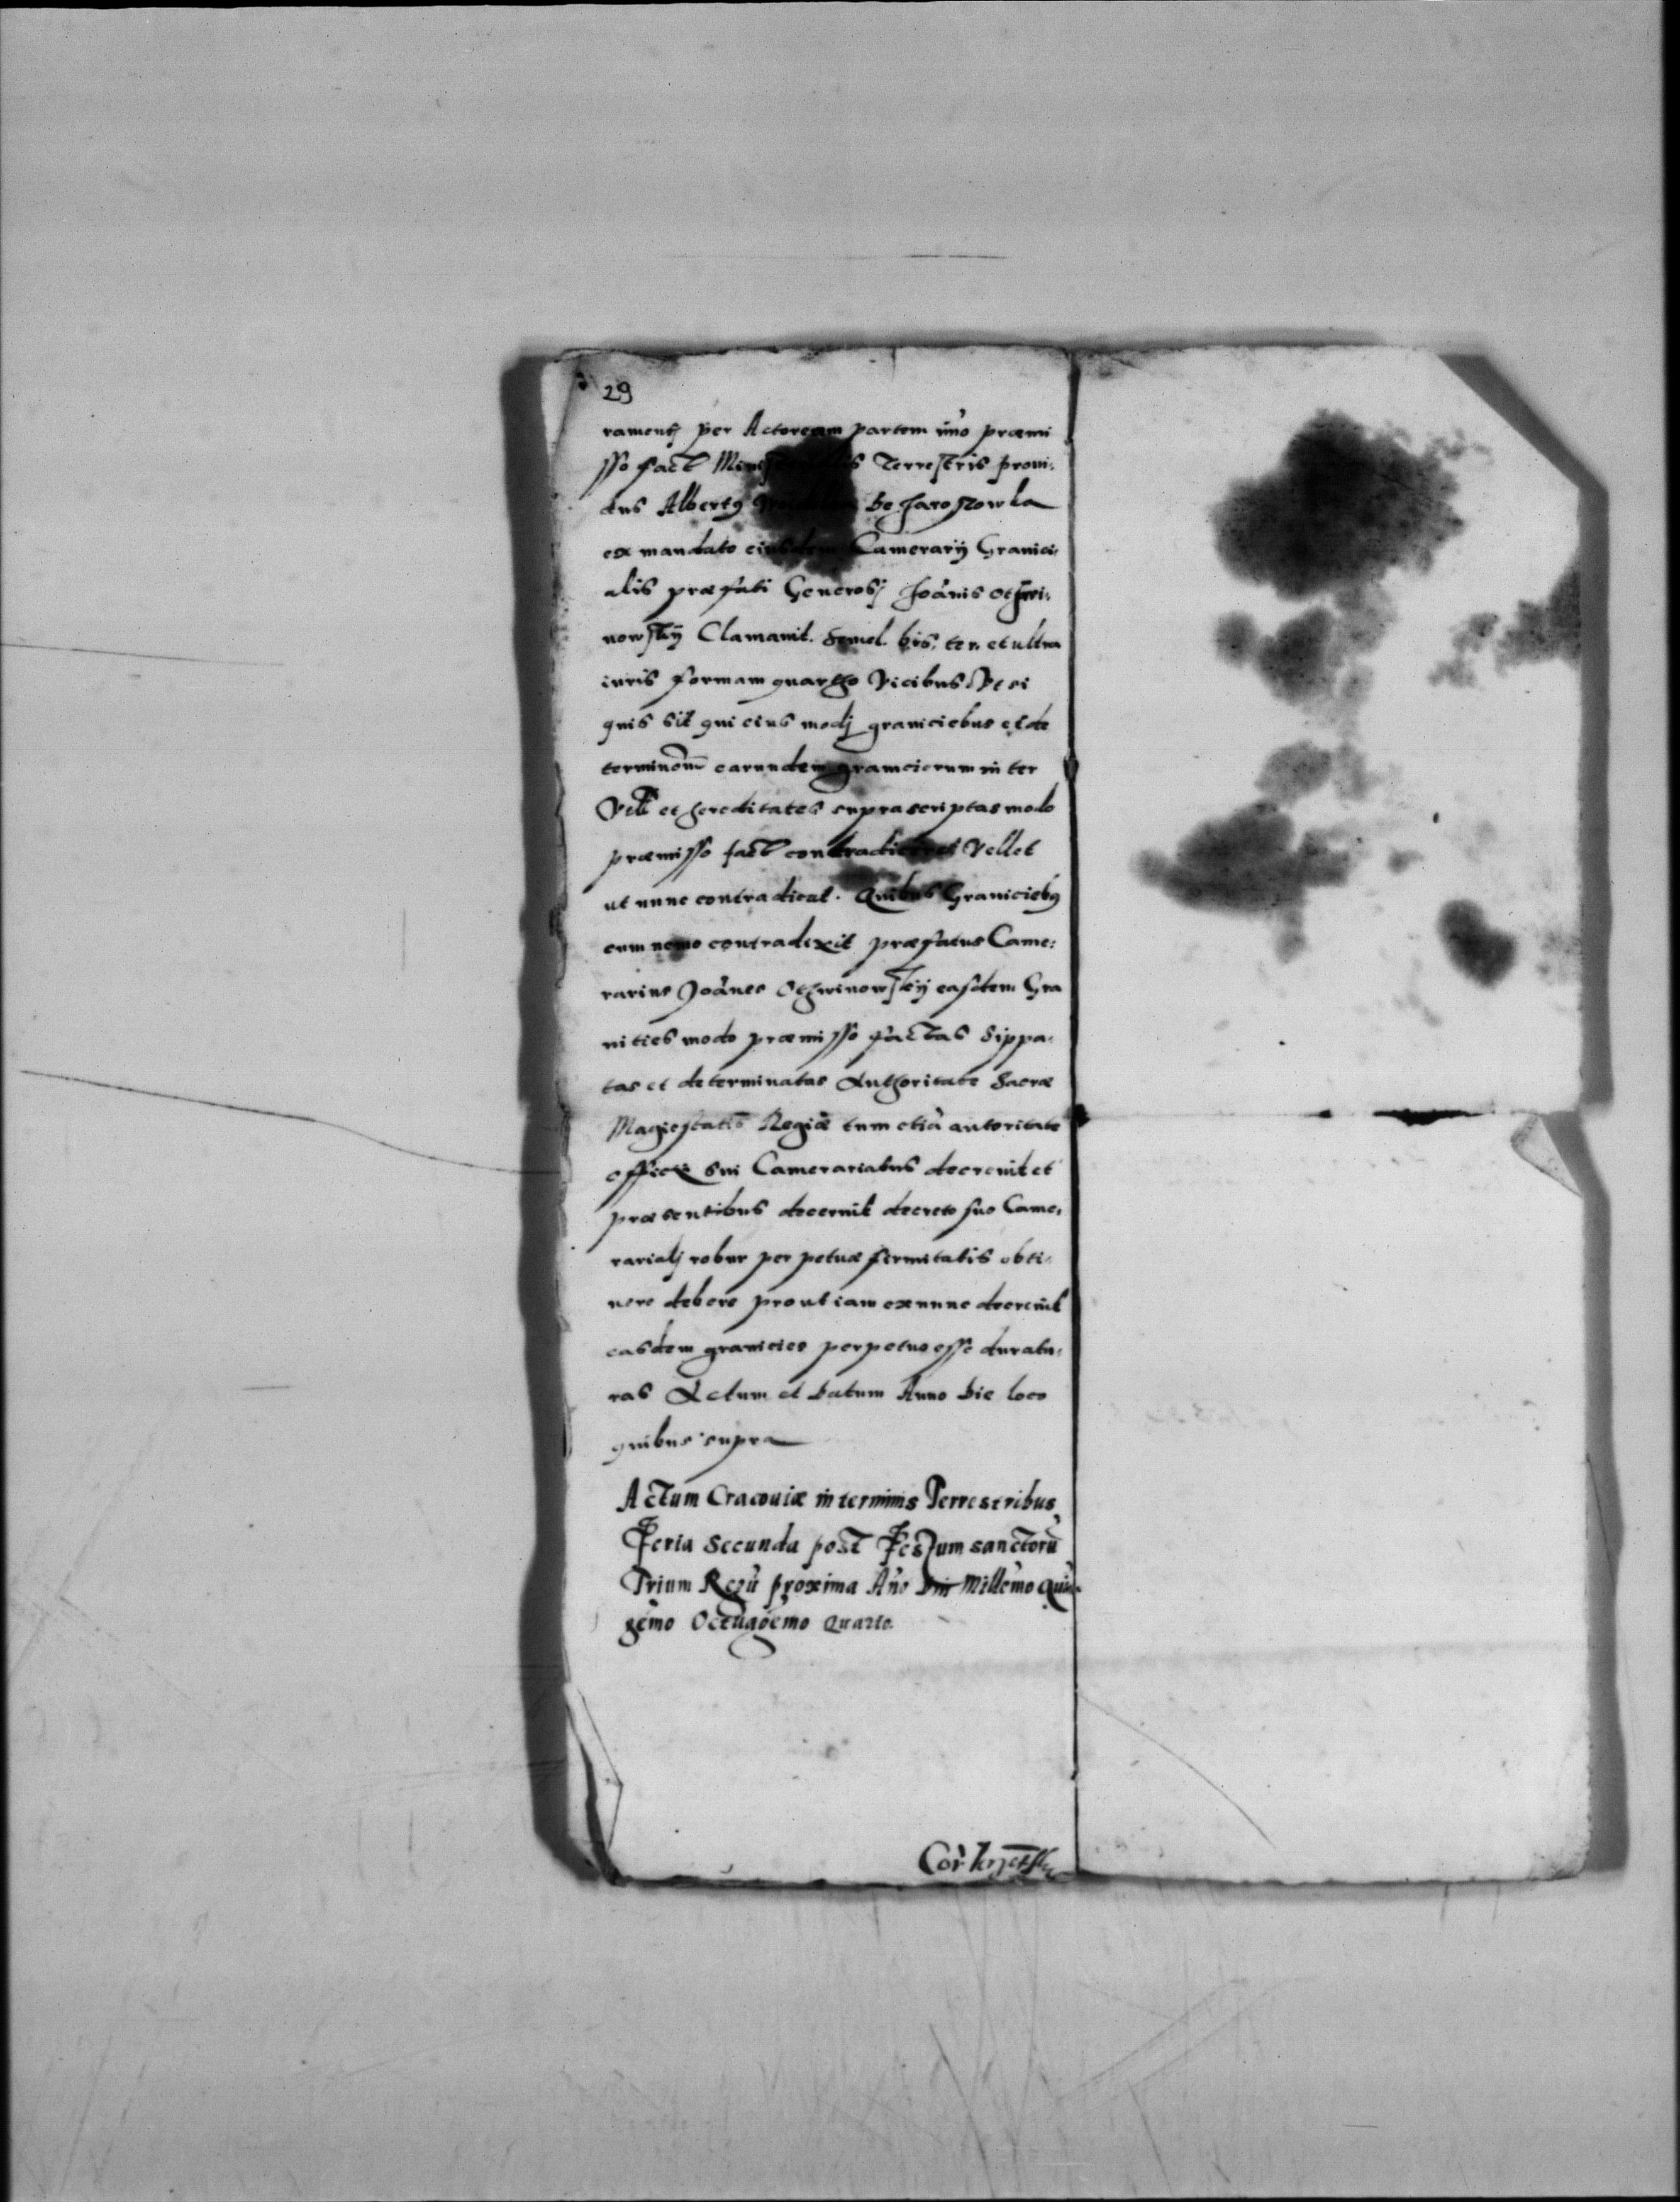 29
ramentj per Actoream partem mo præmi
sso fact Terrestris provi,
dus Albertq de Jaroszowka
ex mandato eiusdem Camerarij Granici,
alis præfati Generosj Joanis Othwi,
nowskij Clamavit. Semel. bis, ter, et ultra
iuris formam quartho Vicibus Vt si
quis sit qui eius modj graniciebus et de
terminom earundem granicierum inter
Vill et hereditates suprascriptas modo
præmisso fact Vellet
ut nunc contradicat. Quibus Graniciebq
cum nemo contradixit præfatus Came:
rarius Joanes Othwinowskij easdem Gra
nities modo præmisso factas Sippa,
tas et determinatas Authoritate Sacræ
Magiestatis Regiæ tum etia autoritate
officij sui Camerariatus decrevit et
præsentibus decernit decreto suo Came,
rarialj robur perpetuæ firmitatis obti,
nere debere prout iam ex nunc decrevit
easdem granicies perpetuo esse duratu,
ras Actum et datum Anno die loco
quibus supra
Actum Cracoviæ in terminis Terrestribus
Feria Secunda post Festum sanctoru
Trium Regu proxima Ano Dni Millemo Quin
gemo Octuagoemo Quarto.
Cor